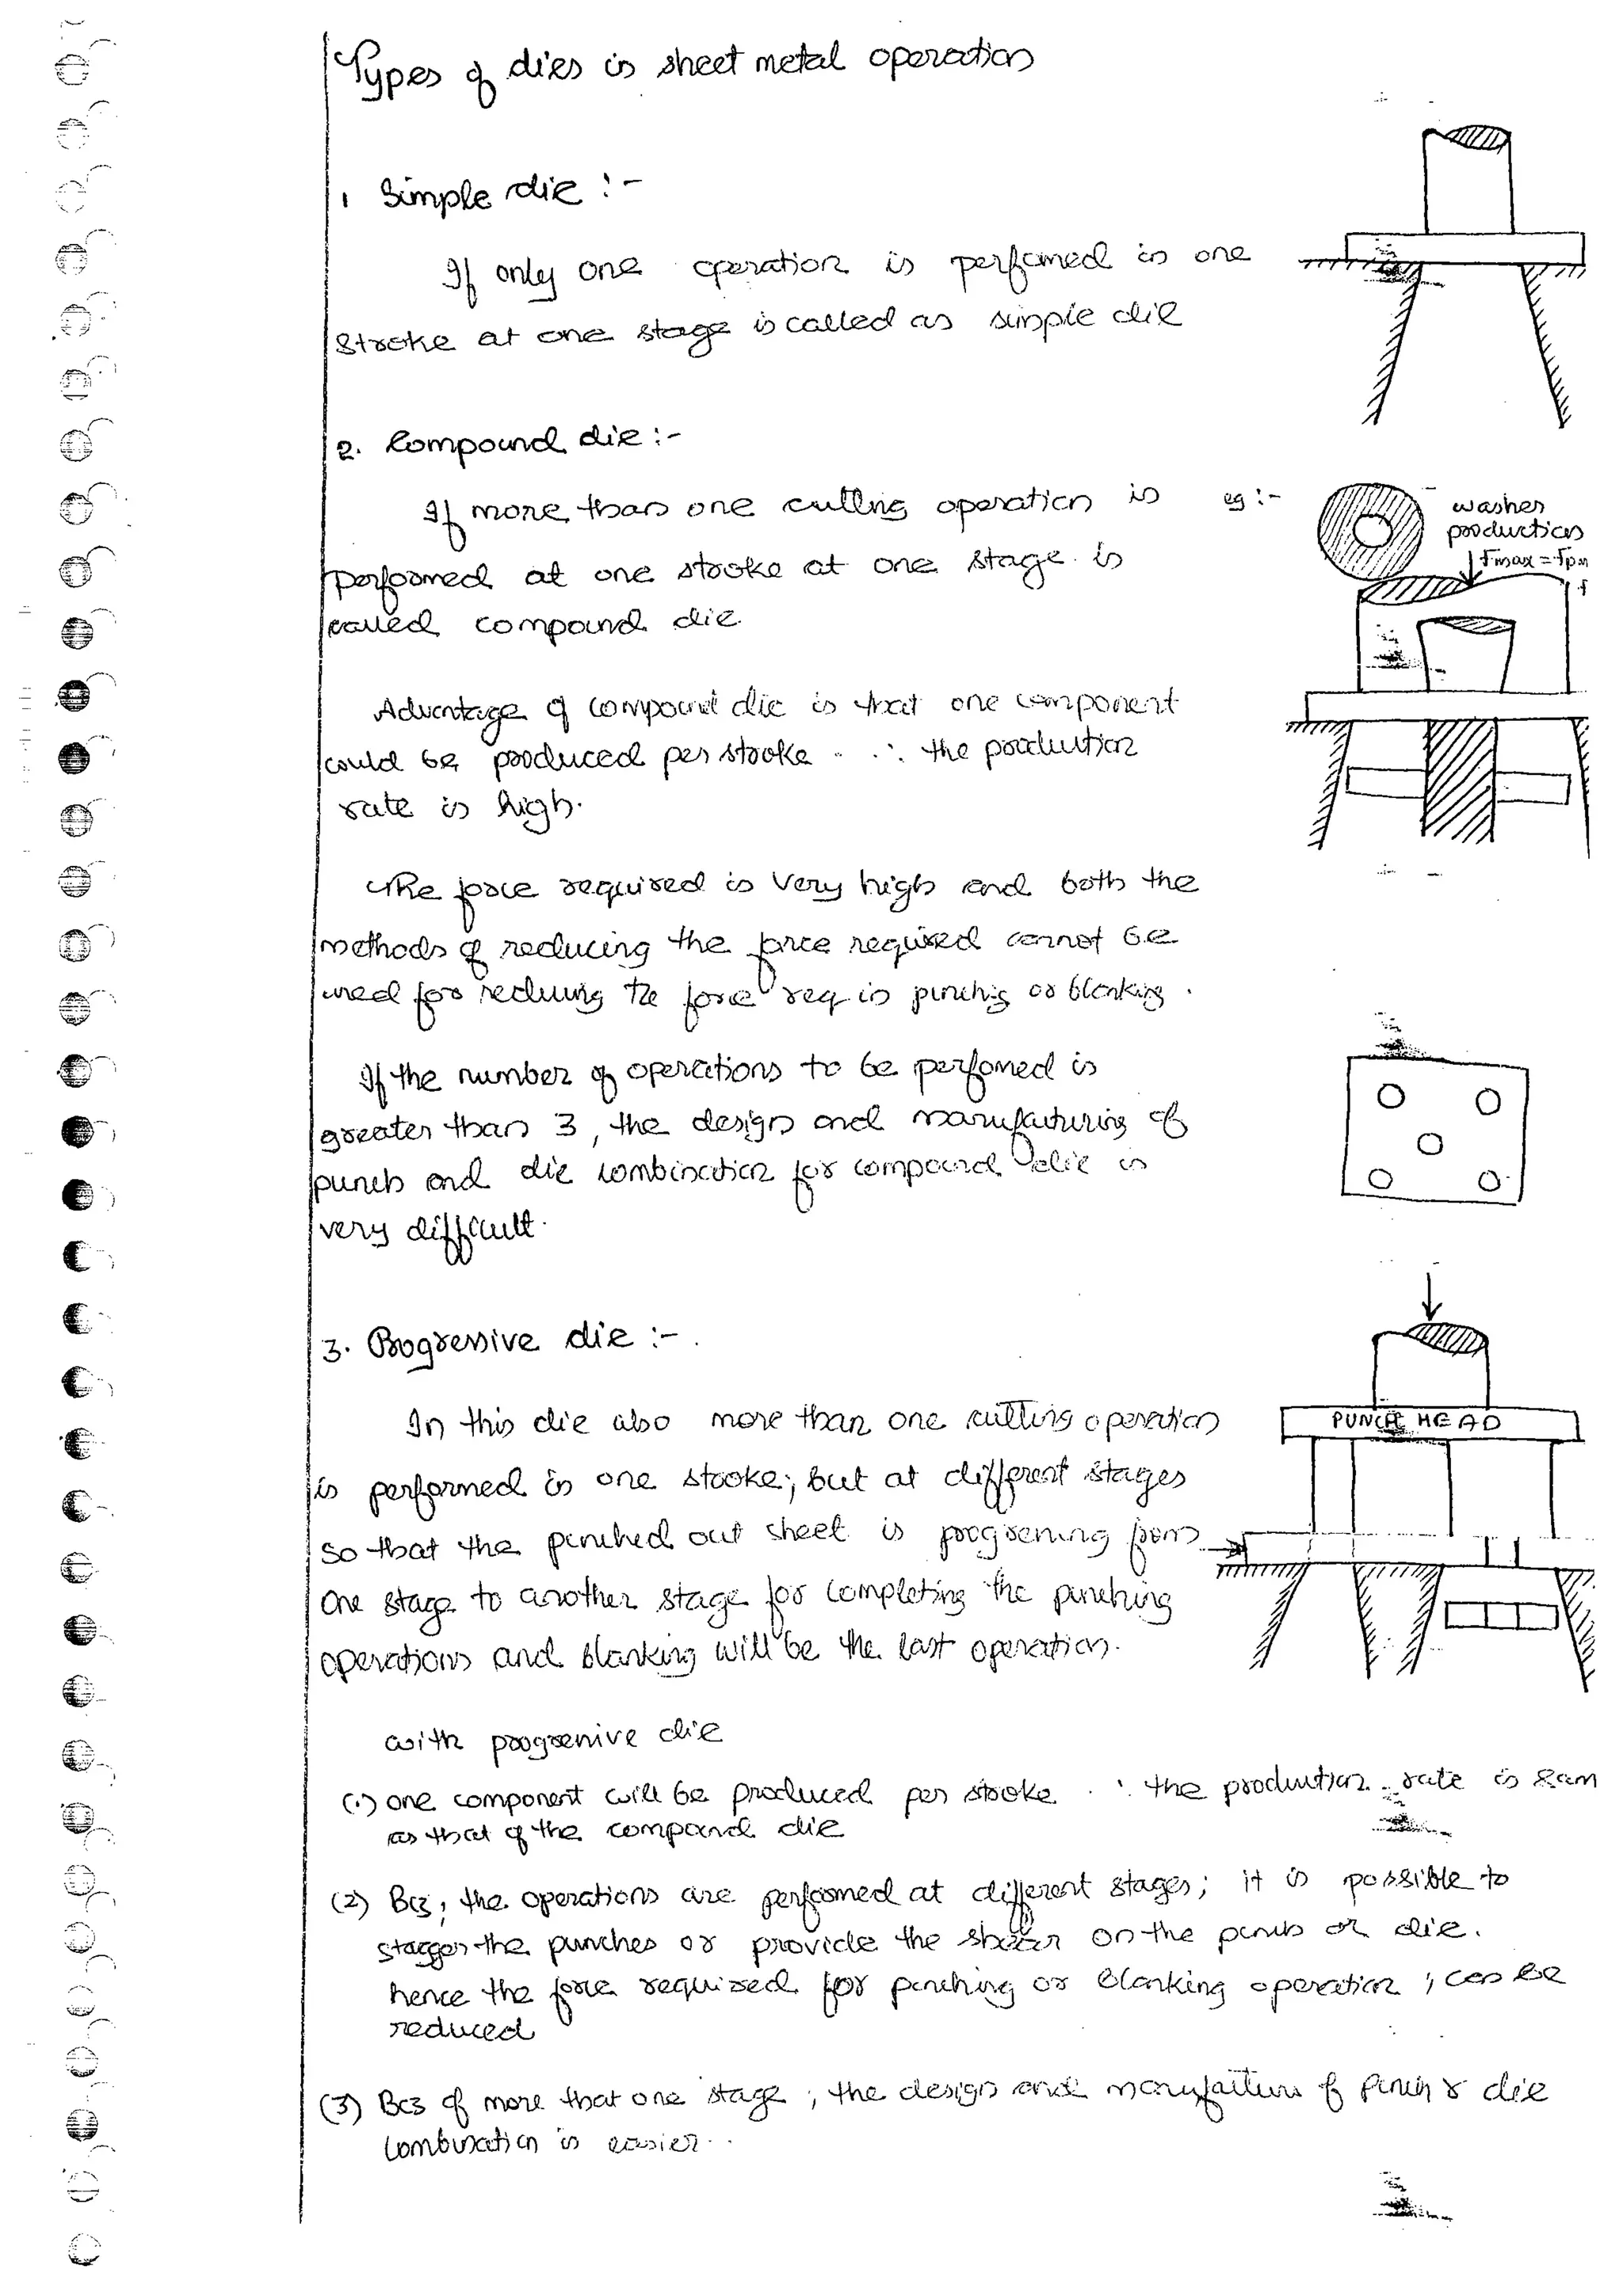 Types of dies in sheet metal operation
1 Simple die :-
If only one operation is performed in one
stroke at one stage is called as simple die
2. Compound die :-
If more than one cutting operation is
performed at one stroke at one stage is
called compound die
eg :-
washer
production
Fmax = Fpn
Advantage of compound die is that one component
could be produced per stroke . ∴ the production
rate is high.
The force required is very high and both the
methods of reducing the force required cannot be
used for reducing the force req in punching or blanking .
If the number of operations to be performed is
greater than 3, the design and manufacturing of
punch and die combination for compound die is
very difficult.
3. Progressive die :-
In this die also more than one cutting operation
is performed in one stroke; but at different stages
so that the punched out sheet is progressing from
one stage to another stage for completing the punching
operations and blanking will be the last operation.
PUNCH HEAD
with progressive die
(1) one component will be produced per stroke . ∴ the production rate is sam
as that of the compound die
(2) Bcz, the operations are performed at different stages; it is possible to
stagger the punches or provide the shear on the punch or die.
hence the force required for punching or blanking operation, can be
reduced
(3) Bcz of more that one stage, the design and manufacture of punch & die
combination is easier.